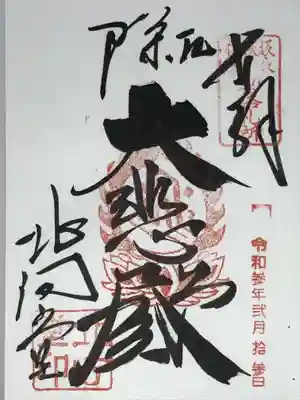 奉拝
令和参年弐月拾参日
厄除
大悲殿
北向堂